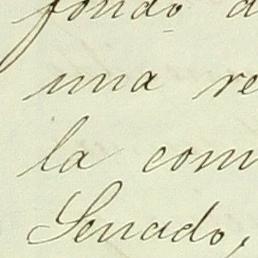 fondo d
una re
la com
Senado,